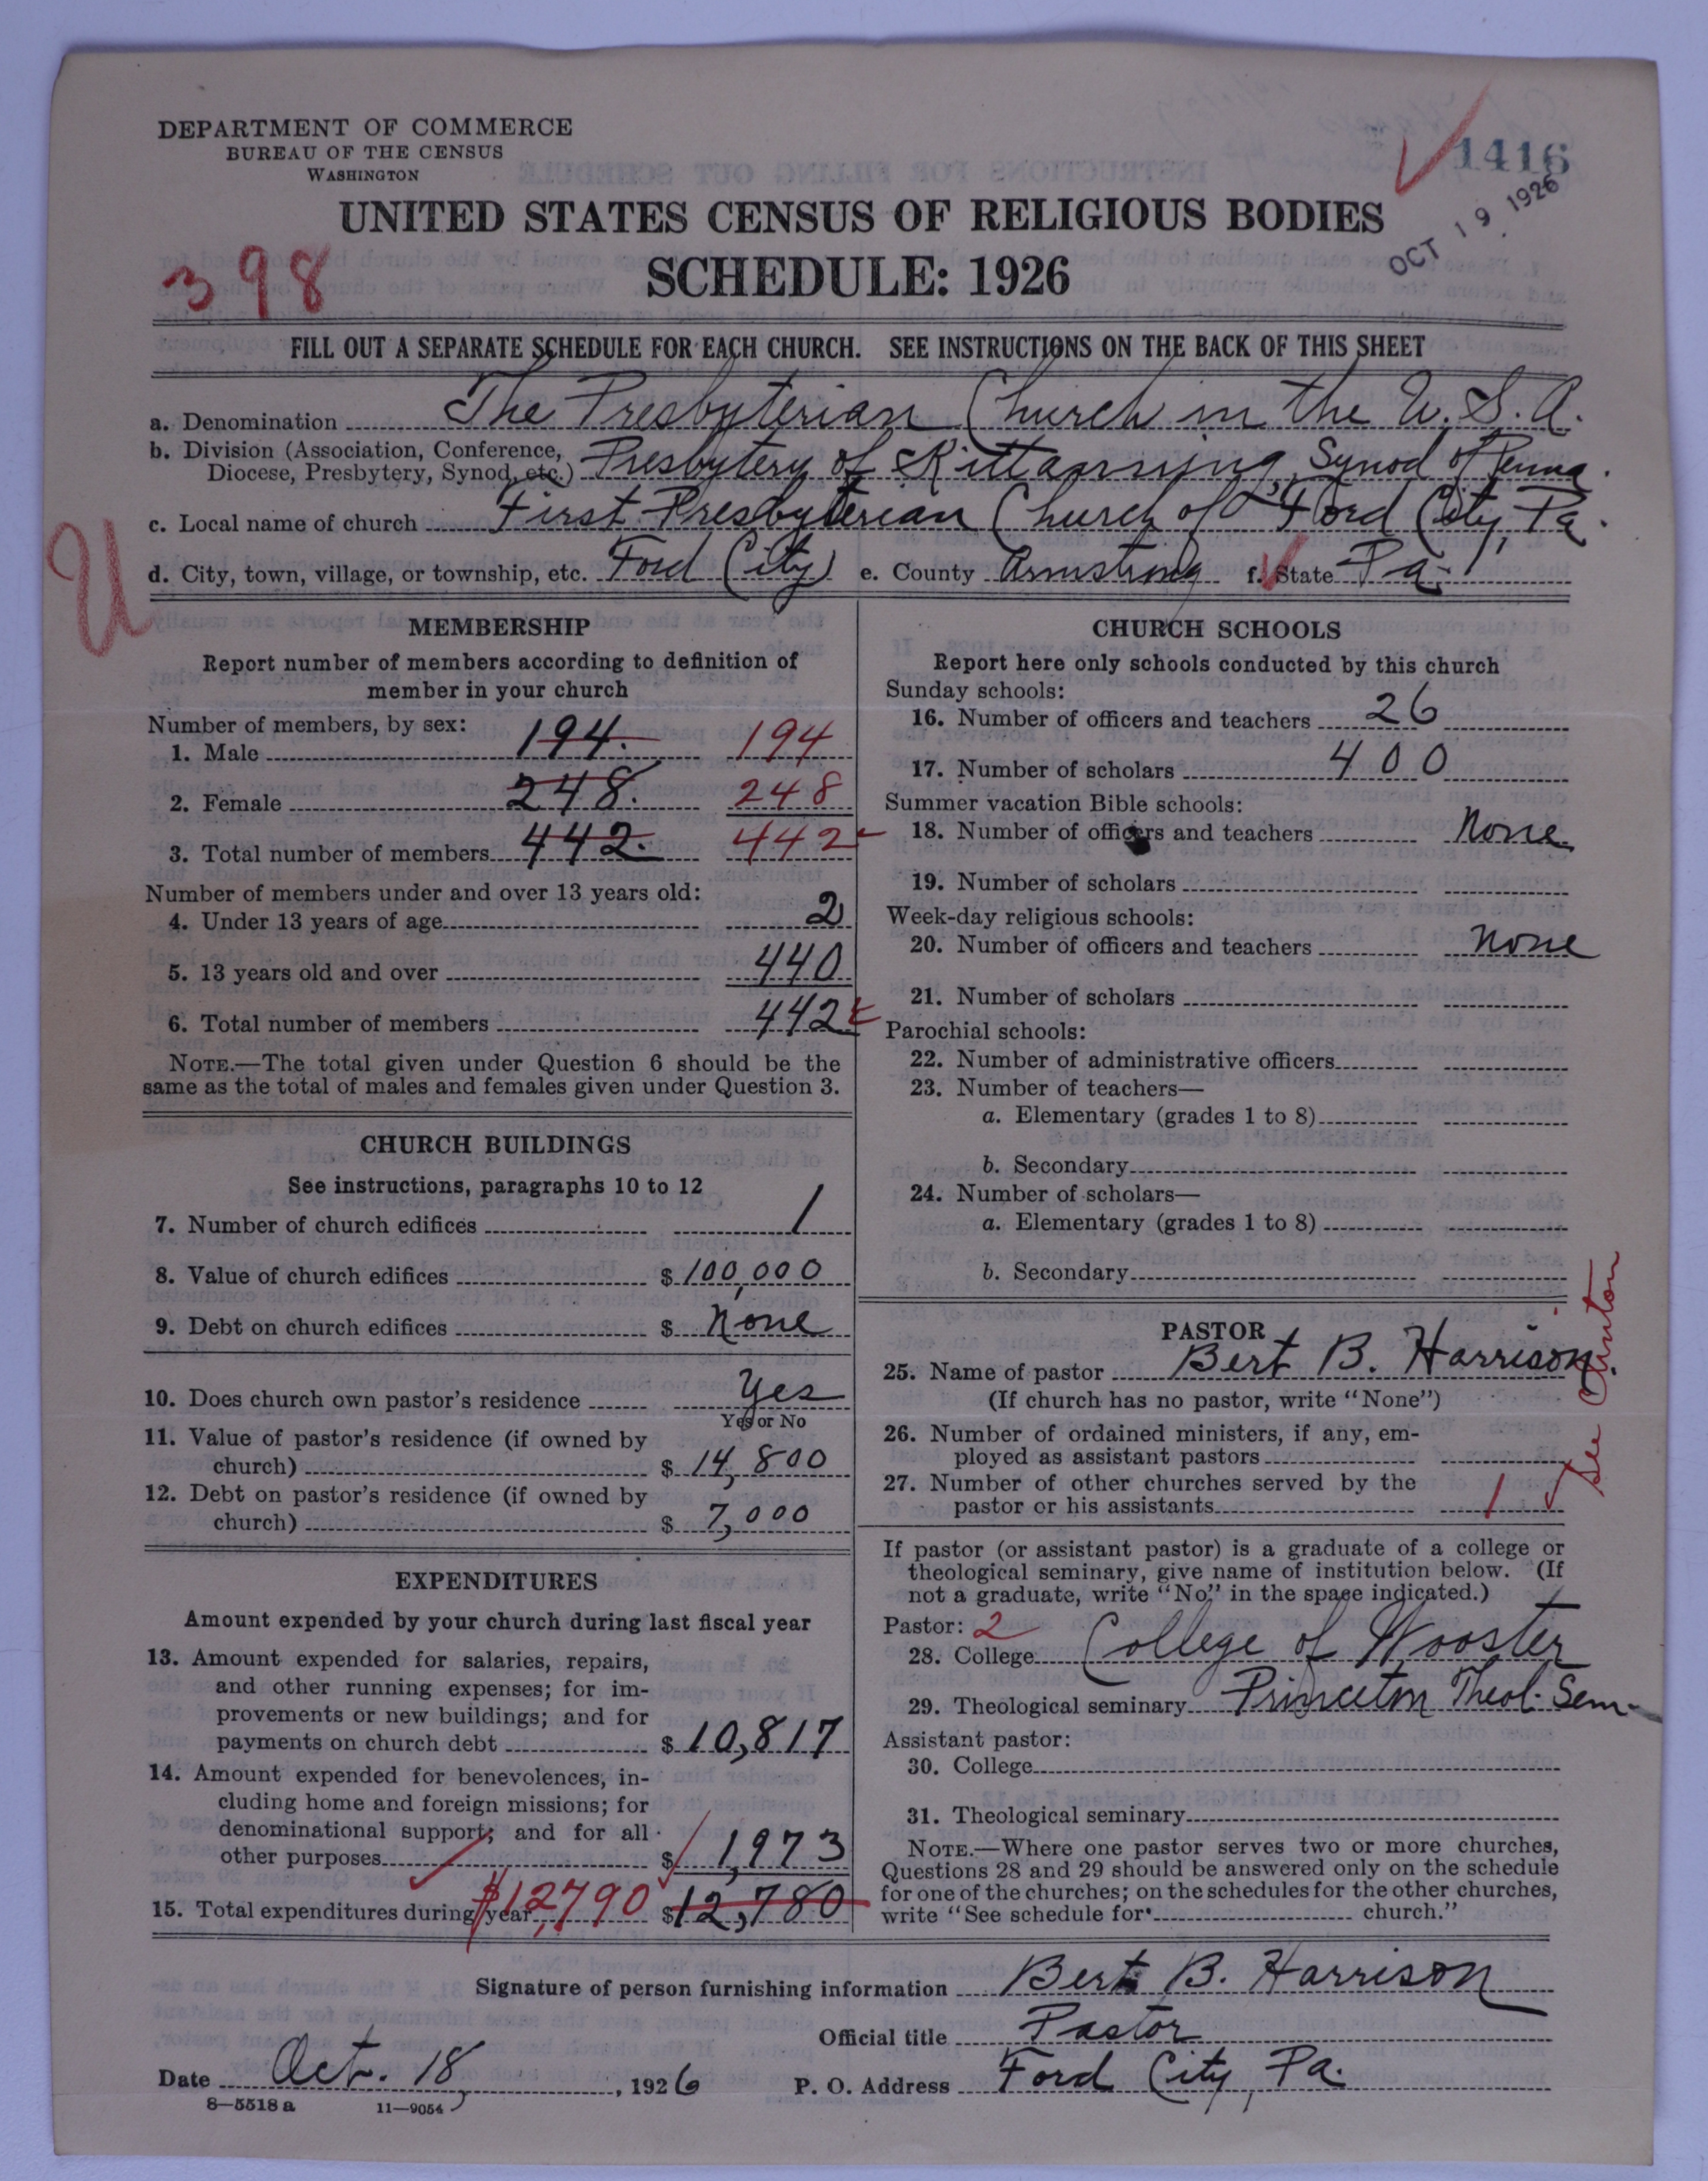 DEPARTMENT OF COMMERCE
BUREAU OF THE CENSUS
WASHINGTON
1416
OCT 19 1926
UNITED STATES CENSUS OF RELIGIOUS BODIES
398
SCHEDULE: 1926
FILL OUT A SEPARATE SCHEDULE FOR EACH CHURCH. SEE INSTRUCTIONS ON THE BACK OF THIS SHEET
a. Denomination The Presbyterian Church in the U.S.A.
b. Division (Association, Conference,
Diocese, Presbytery, Synod, etc.) Presbytery of Kittanning, Synod of Penna.
c. Local name of church First Presbyterian Church of Ford City, Pa.
U
d. City, town, village, or township, etc. Ford City e. County Armstrong f. State Pa.
MEMBERSHIP
Report number of members according to definition of
member in your church
Number of members, by sex:
1. Male 194. 194
2. Female 248. 248
3. Total number of members 442. 442
Number of members under and over 13 years old:
4. Under 13 years of age 2
5. 13 years old and over 440
6. Total number of members 442
NOTE.—The total given under Question 6 should be the
same as the total of males and females given under Question 3.
CHURCH BUILDINGS
See instructions, paragraphs 10 to 12
7. Number of church edifices 1
8. Value of church edifices $ 100,000
9. Debt on church edifices $ None
10. Does church own pastor's residence Yes
Yes or No
11. Value of pastor's residence (if owned by
church) $ 14,800
12. Debt on pastor's residence (if owned by
church) $ 7,000
EXPENDITURES
Amount expended by your church during last fiscal year
13. Amount expended for salaries, repairs,
and other running expenses; for im-
provements or new buildings; and for
payments on church debt $ 10,817
14. Amount expended for benevolences, in-
cluding home and foreign missions; for
denominational support; and for all
other purposes $ 1,973
15. Total expenditures during year $12,790 $12,780
CHURCH SCHOOLS
Report here only schools conducted by this church
Sunday schools:
16. Number of officers and teachers 26
17. Number of scholars 400
Summer vacation Bible schools:
18. Number of officers and teachers None
19. Number of scholars
Week-day religious schools:
20. Number of officers and teachers None
21. Number of scholars
Parochial schools:
22. Number of administrative officers
23. Number of teachers—
a. Elementary (grades 1 to 8)
b. Secondary
24. Number of scholars—
a. Elementary (grades 1 to 8)
b. Secondary
PASTOR
25. Name of pastor Bert B. Harrison.
(If church has no pastor, write "None")
26. Number of ordained ministers, if any, em-
ployed as assistant pastors
27. Number of other churches served by the
pastor or his assistants 1
See Clinton
If pastor (or assistant pastor) is a graduate of a college or
theological seminary, give name of institution below. (If
not a graduate, write "No" in the space indicated.)
Pastor: 2
28. College College of Wooster
29. Theological seminary Princeton Theol. Sem.
Assistant pastor:
30. College
31. Theological seminary
NOTE.—Where one pastor serves two or more churches,
Questions 28 and 29 should be answered only on the schedule
for one of the churches; on the schedules for the other churches,
write "See schedule for church."
Signature of person furnishing information Bert B. Harrison
Official title Pastor
Date Oct. 18, 1926 P. O. Address Ford City, Pa.
8—5518 a 11—9054